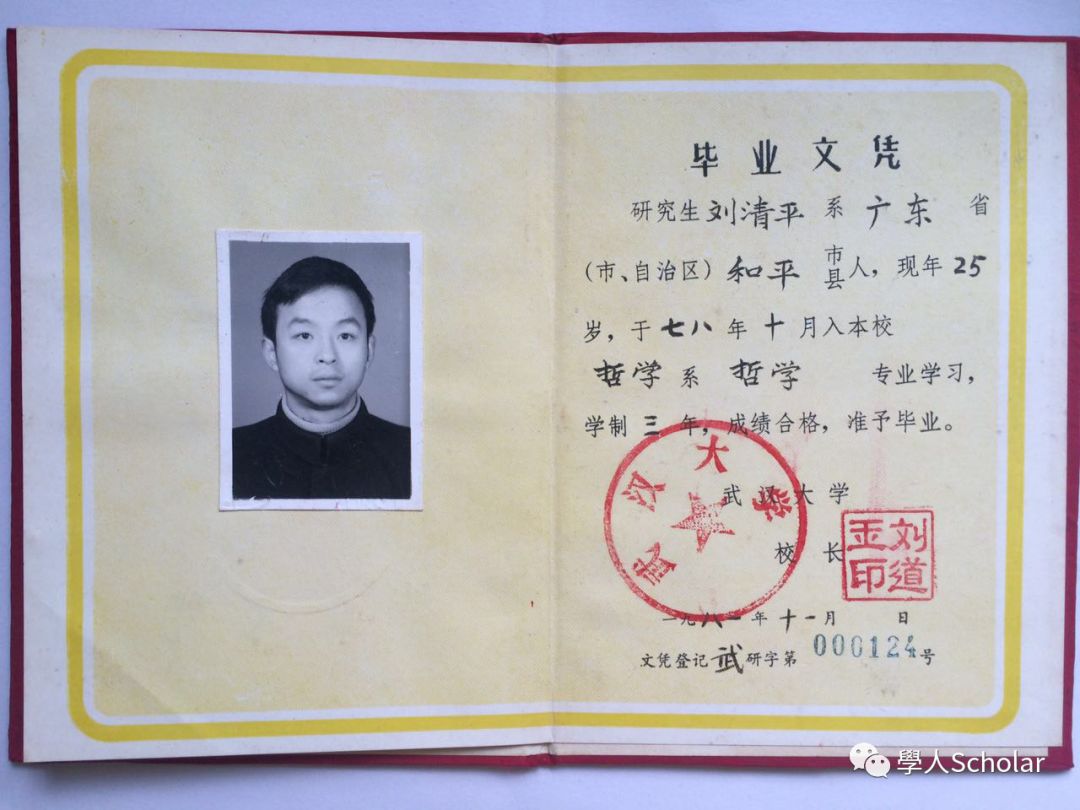 毕业文凭
研究生刘清平系广东省
（市、自治区）和平市县人，现年25
岁，于七八年十月入本校
哲学系哲学专业学习，
学制三年，成绩合格，准予毕业。
武汉大学
武汉大学
校长
刘道玉印
一九八一年十一月 日
文凭登记武研字第000124号
學人Scholar